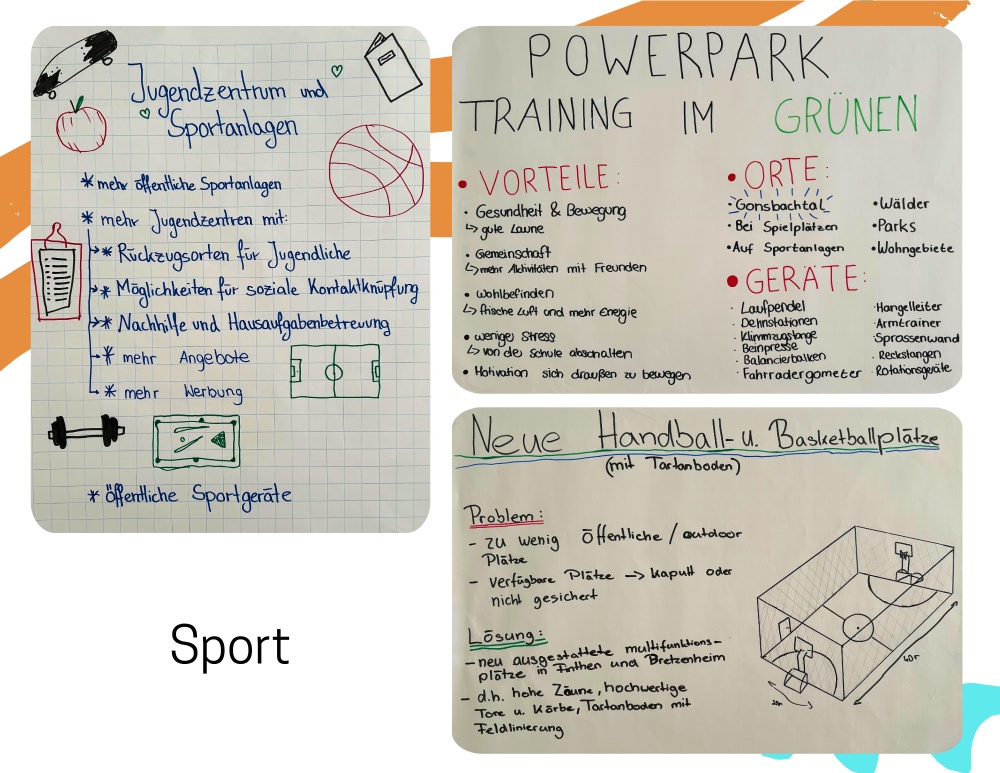 Jugendzentrum und
Sportanlagen
* mehr öffentliche Sportanlagen
* mehr Jugendzentren mit:
* Rückzugsorten für Jugendliche
* Möglichkeiten für soziale Kontaktknüpfung
* Nachhilfe und Hausaufgabenbetreuung
* mehr Angebote
* mehr Werbung
* öffentliche Sportgeräte
POWERPARK
TRAINING IM GRÜNEN
• VORTEILE:
· Gesundheit & Bewegung
↳ gute Laune
· Gemeinschaft
↳ mehr Aktivitäten mit Freunden
• Wohlbefinden
↳ frische Luft und mehr Energie
• weniger Stress
↳ von der Schule abschalten
• Motivation sich draußen zu bewegen
• ORTE:
Gonsbachtal
• Bei Spielplätzen
• Auf Sportanlagen
• Wälder
• Parks
• Wohngebiete
• GERÄTE:
· Laufpendel
· Dehnstationen
· Klimmzugstange
· Beinpresse
· Balancierbalken
· Fahrradergometer
· Hangelleiter
· Armtrainer
· Sprossenwand
· Reckstangen
· Rotationsgeräte
Neue Handball- u. Basketballplätze
(mit Tartanboden)
Problem:
- zu wenig öffentliche / outdoor
Plätze
- verfügbare Plätze -> kaputt oder
nicht gesichert
Lösung:
- neu ausgestattete multifunktions-
plätze in Finthen und Bretzenheim
- d.h. hohe Zäune, hochwertige
Tore u. Körbe, Tartanboden mit
Feldlinierung
Sport